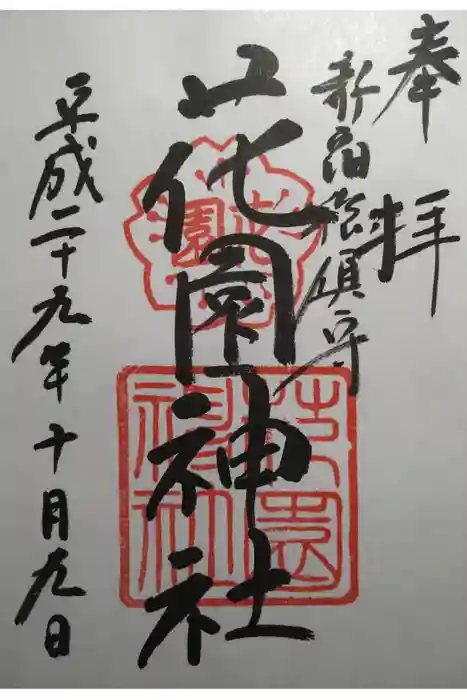 奉拝
新宿総鎮守
花園神社
花園
花園
神社
平成二十九年十月九日